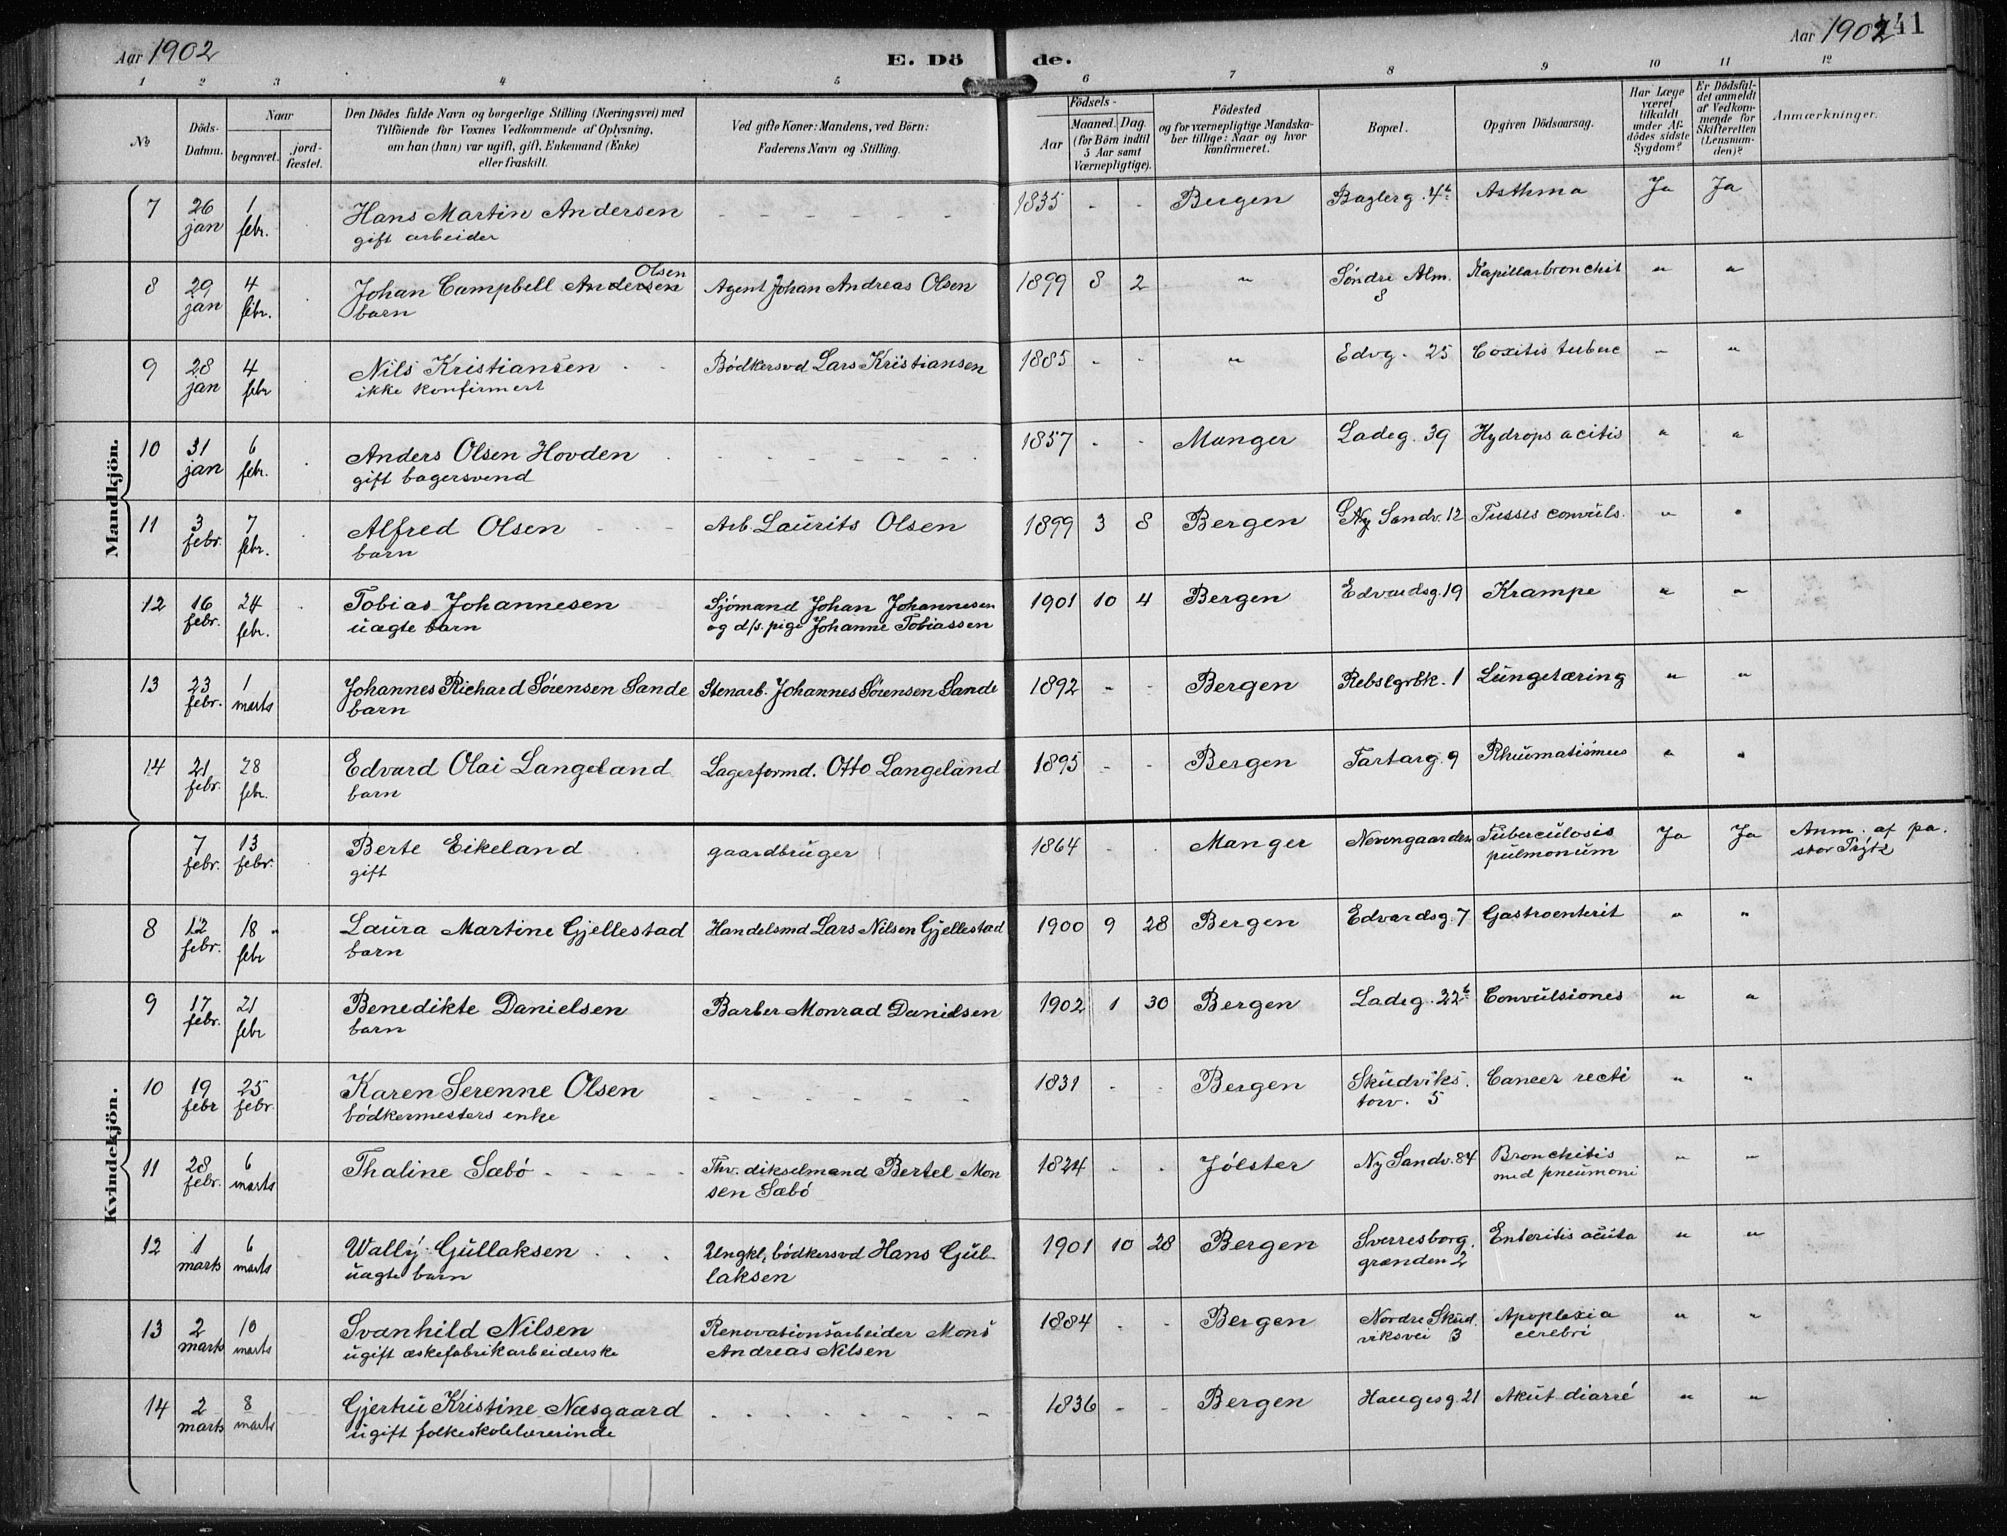 Aar 1902
E. Dö
de.
Aar 1902
141
1 2 3 4 5 6 7 8 9 10 11 12
No
Döds-Datum.
Naar
begravet.
jord-fæstet.
Den Dödes fulde Navn og borgerlige Stilling (Næringsvei) med
Tilföiende for Voxnes Vedkommende af Oplysning,
om han (hun) var ugift, gift, Enkemand (Enke)
eller fraskilt.
Ved gifte Koner: Mandens, ved Börn:
Faderens Navn og Stilling.
Födsels-
Aar
Maaned. Dag.
(for Börn indtil
5 Aar samt
Værnepligtige).
Födested
og for værnepligtige Mandska-
ber tillige: Naar og hvor
konfirmeret.
Bopæl.
Opgiven Dödsaarsag.
Har Læge
været
tilkaldt
under Af-
dödes sidste
Sygdom?
Er Dödsfal-
det anmeldt
af Vedkom-
mende for
Skifteretten
(Lensman-
den)?
Anmærkninger.
Mandkjön.
7 26 jan 1 febr. Hans Martin Andersen - - - 1835 - - Bergen Baglerg. 4b Asthma Ja Ja
gift arbeider
Olsen
8 29 jan 4 febr. Johan Campbell Andersen Agent Johan Andreas Olsen 1899 8 2 " Søndre Alm. 8 Kapillærbronchit " "
barn
9 28 jan 4 febr Nils Kristiansen Bødkersvd Lars Kristiansen 1885 - - " Edvg. 25 Coxitis tuberc " "
ikke konfirmert
10 31 jan 6 febr. Anders Olsen Hovden - - - 1857 - - Manger Ladeg. 39 Hydrops acitis " "
gift bagersvend
11 3 febr. 7 febr. Alfred Olsen Arb. Laurits Olsen 1899 3 8 Bergen Ny Sandv. 12 Tussis convuls. " "
barn
12 16 febr. 24 febr. Tobias Johannesen Sjømand Johan Johannesen 1901 10 4 Bergen Edvardsg. 19 Krampe " "
uægte barn og d/s. pige Johanne Tobiassen
13 23 febr. 1 marts Johannes Richard Sørensen Sande Stenarb. Johannes Sørensen Sande 1892 - - Bergen Rebslgrbk. 1 Lungetæring " "
barn
14 21 febr. 28 febr. Edvard Olai Langeland Lagerformd. Otto Langeland 1895 - - Bergen Tartarg. 9 Rheumatismus " "
barn
Kvindekjön.
7 febr. 13 febr. Berte Eikeland gaardbruger 1864 - - Manger Nevengaarden Tuberculosis pulmonum Ja Ja Anm. af pa-
gift stor Prytz
8 12 febr. 18 febr Laura Martine Gjellestad Handelsmd Lars Nilsen Gjellestad 1900 9 28 Bergen Edvardsg. 7 Gastroenterit " "
barn
9 17 febr. 21 febr Benedikte Danielsen Barber Monrad Danielsen 1902 1 30 Bergen Ladeg. 22b Convulsiones " "
barn
10 19 febr 25 febr. Karen Serenne Olsen - - - 1831 - - Bergen Skudviks. torv. 5 Cancer recti " "
bødkermesters enke
11 28 febr. 6 marts Thaline Sæbö Thv. dikselmand Bertel Mon 1824 - - Jølster Ny Sandv. 84 Bronchitis
sen Sæbö med pneumoni " "
12 1 marts 6 marts Wally Gullaksen Ungkl, bødkersvd Hans Gul- 1901 10 28 Bergen Sverresborg. grænden 2 Enteritis acuta " "
uægte barn laksen
13 2 marts 10 marts Svanhild Nilsen Renovationsarbeider Mons 1884 - - Bergen Nordre Skud. viksvei 3 Apoplexia cerebri " "
ugift æskefabrikarbeiderske Andreas Nilsen
14 2 marts 8 marts Gjertru Kristine Næsgaard - - - 1836 - - Bergen Haugesg. 21 Akut diarré " "
ugift folkeskolelærerinde